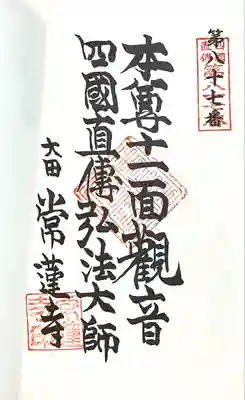 第八十七番
本尊十一面觀音
四國直傳弘法大師
大田 常蓮寺